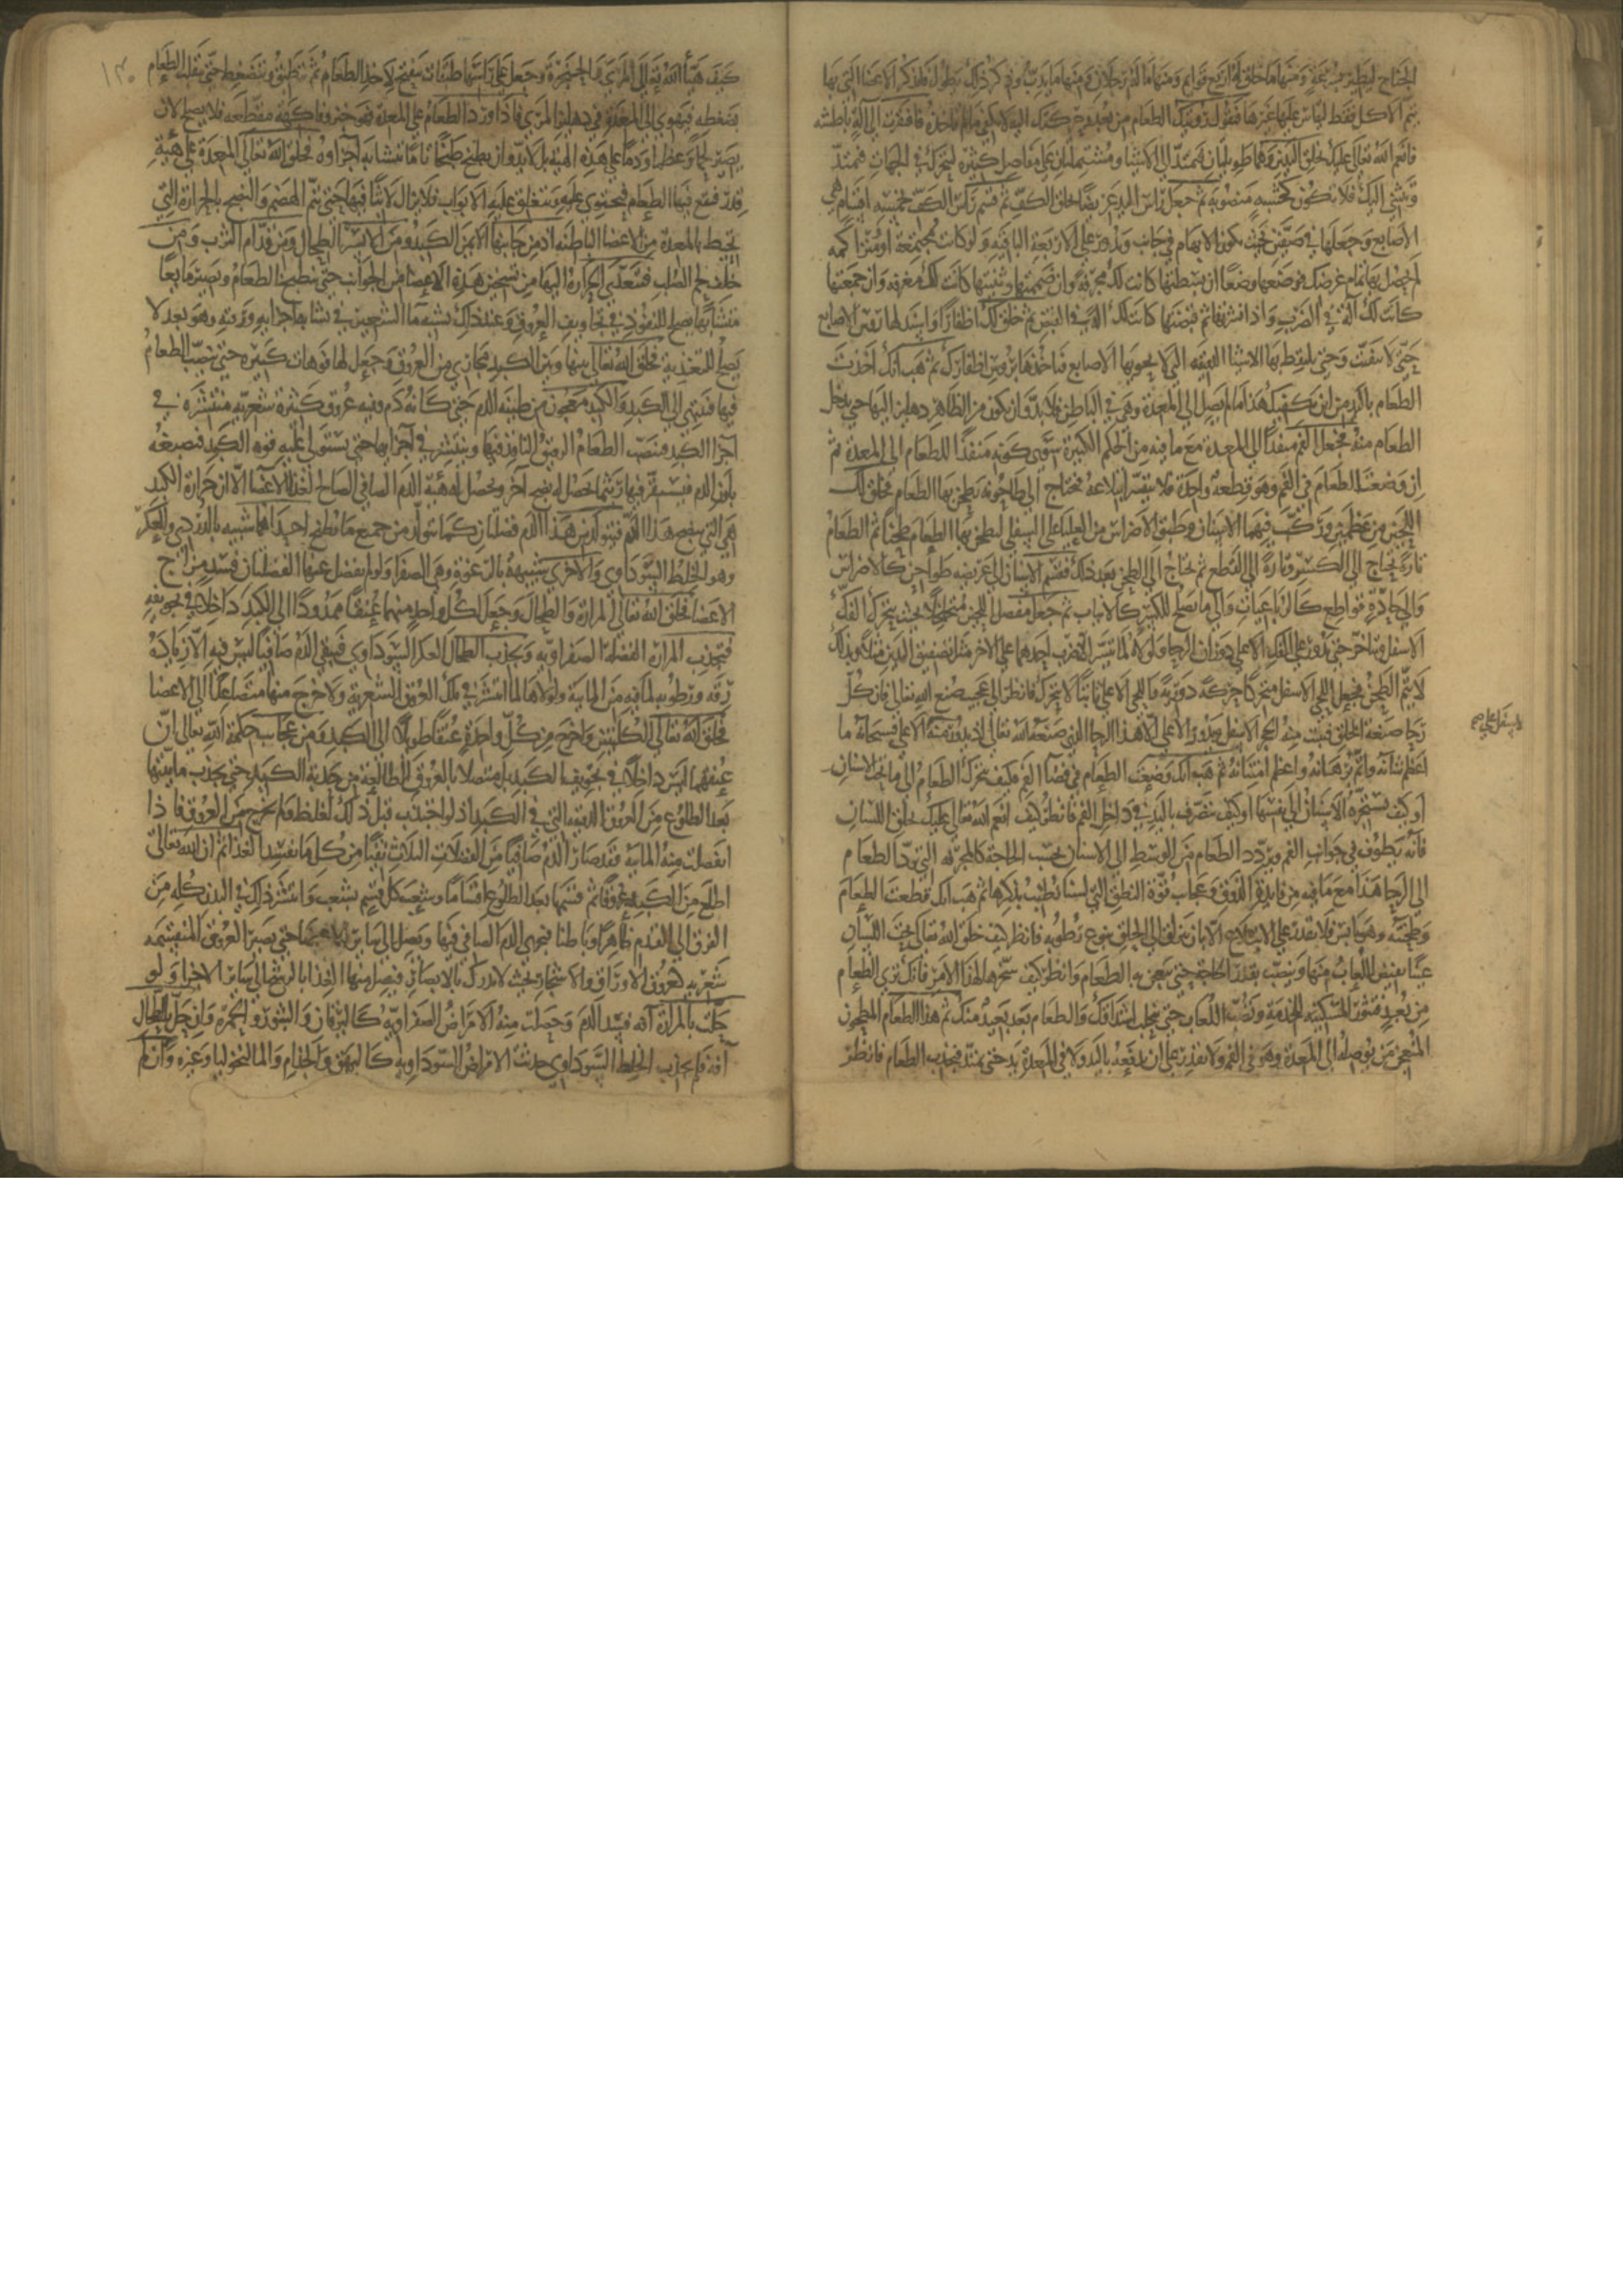 الجناح ليطير بسرعة ومنها ما خلق له اربع قوايم ومنها ما له رجلان ومنها ما يدب وذكر ذلك يطول فلنذكر الاعضا التي بها
يتم الاكل فقط ليقاس عليها غيرها فنقول رويتك الطعام من بعد وحركتك اليه لا يكفي ما لم تاخذه فافتقرت الى الة باطشه
فانعم الله تعالى عليك بخلق اليدين وهما طويلتان تمتدان الى الاشيا ومشتملتان على مفاصل كثيرة لتتحرك في الجهات فتمتد
وتنثني اليك فلا تكون كخشبه منصوبه ثم جعل راس اليد عريضا بخلق الكف ثم قسم راس الكف بخمسة اقسام هي
الاصابع وجعلها في صفين بحيث يكون الابهام في جانب ويدور على الاربعة الباقيه ولو كانت مجتمعة او متراكمه
لم يحصل بها تمام غرضك فوضعها وضعا ان بسطتها كانت لك مجرفة وان ضممتها وثنيتها كانت لك مغرفه وان جمعتها
كانت لك الة في الضرب وان نشرتها ثم قبضتها كانت لك الة في القبض ثم خلق لك اظفارا واسند لها روس الاصابع
حتى لا تتفتت وحتى تلتقط بها الاشيا الدقيقه التي لا تحويها الاصابع فتاخذها بروس اظفارك ثم هب انك اخذت
الطعام باليد من اين يكفيك هذا ما لم يصل الى المعدة وهي في الباطن فلا بد وان يكون من الظاهر دهليز اليها حتى يدخل
الطعام منه فجعل الفم منفذا الى المعدة مع ما فيه من الحكم الكبيرة سوى كونه منفذا للطعام الى المعدة ثم
ان وضعت الطعام في الفم وهو قطعة واحدة فلا يتيسر ابتلاعه فتحتاج الى طاحونه تطحن بها الطعام فخلق لك
اللحيين من عظمين وركب فيهما الاسنان وطبق الاضراس من العليا على السفلى لتطحن بها الطعام طحنا ثم الطعام
تارة يحتاج الى الكسر وتارة الى القطع ثم يحتاج الى طحن بعد ذلك فقسم الاسنان الى عريضه طواحن كالاضراس
والى حادة قواطع كالرباعيات والى ما يصلح للكسر كالانياب ثم جعل مفصل اللحيين متخلخلا بحيث يتحرك الفك
الاسفل ويتاخر حتى يدور على الفك الاعلى دوران الرحا ولولاه لما تيسر الا ضرب احدهما على الاخر مثل تصفيق اليدين مثلا وبذلك
لا يتم الطحن فجعل اللحي الاسفل متحركا حركة دورية واللحي الاعلى ثابتا لا يتحرك فانظر الى عجيب صنع الله تعالى فان كل
رحا صنعه الخلق فيثبت منه الحجر الاسفل ويدور الاعلى الا هذا الرحا الذي صنعه الله تعالى اذ يدور منه الاسفل على الاعلى فسبحانه ما
اعظم شانه واتم برهانه واعظم امتنانه ثم هب انك وضعت الطعام في فضا الفم فكيف يتحرك الطعام الى ما تحت الاسنان
او كيف تستجره الاسنان الى نفسها او كيف تتصرف باليد في داخل الفم فانظر كيف انعم الله تعالى عليك بخلق اللسان
فانه يطوف في جوانب الفم ويردد الطعام من الوسط الى الاسنان بحسب الحاجة كالمجرفه التي ترد الطعام
الى الرحا هذا مع ما فيه من فايدة الذوق وعجايب قوة النطق التي لسنا نطيب بذكرها ثم هب انك قطعت الطعام
وطحنته وهو يابس فلا تقدر على الابتلاع الا بان ينزلق الى الحلق بنوع رطوبه فانظر كيف خلق الله تعالى تحت اللسان
عينا يفيض اللعاب منها وينصب بقدر الحاجة حتى ينعجن به الطعام وانظر كيف سخرها لهذا الامر فانك ترى الطعام
من بعد فتثور المسكينه للخدمة وتصب اللعاب حتى يتحلب اشداقك والطعام بعد بعيد منك ثم هذا الطعام المطحون
المنعجن من يوصله الى المعدة وهو في الفم ولا تقدر على ان تدفعه باليد ولا في المعدة يد حتى تمتد فتجذب الطعام فانظر
كيف هيأ الله تعالى المري والحنجرة وجعل على راسها طبقات تنفتح لاخذ الطعام ثم تنطبق وتنضغط حتى يتقلب الطعام
بضغطه فيهوي الى المعدة في دهليز المري فاذا ورد الطعام على المعدة فهو خبز وفاكهة مقطعه فلا يصلح لان
يصير لحما وعظما ودما على هذه الهيئة بل لا بد وان يطبخ طبخا تاما تتشابه اجزاوه فخلق الله تعالى المعدة على هيئة
قدر فيقع فيها الطعام فتحتوي عليه وتنغلق عليه الابواب فلا يزال لابثا فيها حتى يتم الهضم والنضج بالحرارة التي
تحيط بالمعدة من الاعضا الباطنه اذ من جانبها الايمن الكبد ومن الايسر الطحال ومن قدام الثرب ومن
خلف لحم الصلب فتتعدى الحرارة اليها من تسخين هذه الاعضا من الجوانب حتى ينطبخ الطعام ويصير مايعا
متشابها يصلح للنفوذ في تجاويف العروق وعند ذلك يشبه ما الشعير في تشابه اجزايه ورقته وهو بعد لا
يصلح للتغذية فخلق الله تعالى بينها وبين الكبد مجاري من العروق وجعل لها فوهات كثيره حتى ينصب الطعام
فيها فينتهي الى الكبد والكبد معجون من طينه الدم حتى كانه دم وفيه عروق كثيرة شعريه منتشرة في
اجزا الكبد فينصب الطعام الرقيق النافذ فيها وينتشر في اجزايها حتى يستولي عليه قوه الكبد فتصبغه
بلون الدم فيستقر فيها ريثما يحصل له نضج اخر ويحصل له هيئة الدم الصافي الصالح لغذا الاعضا الا ان حرارة الكبد
هي التي تنضج هذا الدم فيتولد من هذا الدم فضلتان كما يتولد من جميع ما يطبخ احديهما شبيه بالدردي والعكر
وهو الخلط السوداوي والاخرى شبيهة بالرغوة وهي الصفرا ولو لم تفصل عنها الفضلتان فسد مزاج
الاعضا فخلق الله تعالى المرارة والطحال وجعل لكل واحد منهما عنقا ممدودا الى الكبد داخلا في تجويفه
فتجذب المرارة الفضلة الصفراويه ويجذب الطحال العكر السوداوي فيبقى الدم صافيا ليس فيه الا زيادة
رقه ورطوبه لما فيه من المايية ولولاها لما انتشر في تلك العروق الشعرية ولا خرج منها متصاعدا الى الاعضا
فخلق الله تعالى الكليتين واخرج من كل واحدة عنقا طويلا الى الكبد ومن عجايب حكمة الله تعالى ان
عنقهما ليس داخلا في تجويف الكبد بل متصلا بالعروق الطالعة من حدبة الكبد حتى يجذب مايتها
بعد الطلوع من العروق الدقيقه التي في الكبد اذ لو اجتذب قبل ذلك لغلظ فلم يخرج من العروق فاذا
انفصلت منه المايية فقد صار الدم صافيا من الفضلات الثلاث نقيا من كل ما يفسد الغذا ثم ان الله تعالى
اطلع من الكبد عروقا ثم قسمها بعد الطلوع اقساما وشعب كل قسم بشعب وانتشر ذلك في البدن كله من
الفرق الى القدم ظاهرا وباطنا فيجري الدم الصافي فيها ويصل الى ساير الاعضا حتى تصير العروق المنقسمه
شعريه كعروق الاوراق والاشجار بحيث لا تدرك بالابصار فيصل منها الغذا بالرشح الى ساير الاجزا ولو
حلت بالمرارة افه فسد الدم وحصلت منه الامراض الصفراويه كاليرقان والبثور والحمرة وان حل بالطحال
افة فلم يجذب الخلط السوداوي حدثت الامراض السوداويه كالبهق والجذام والماليخوليا وغيره وان لم
١٣٠